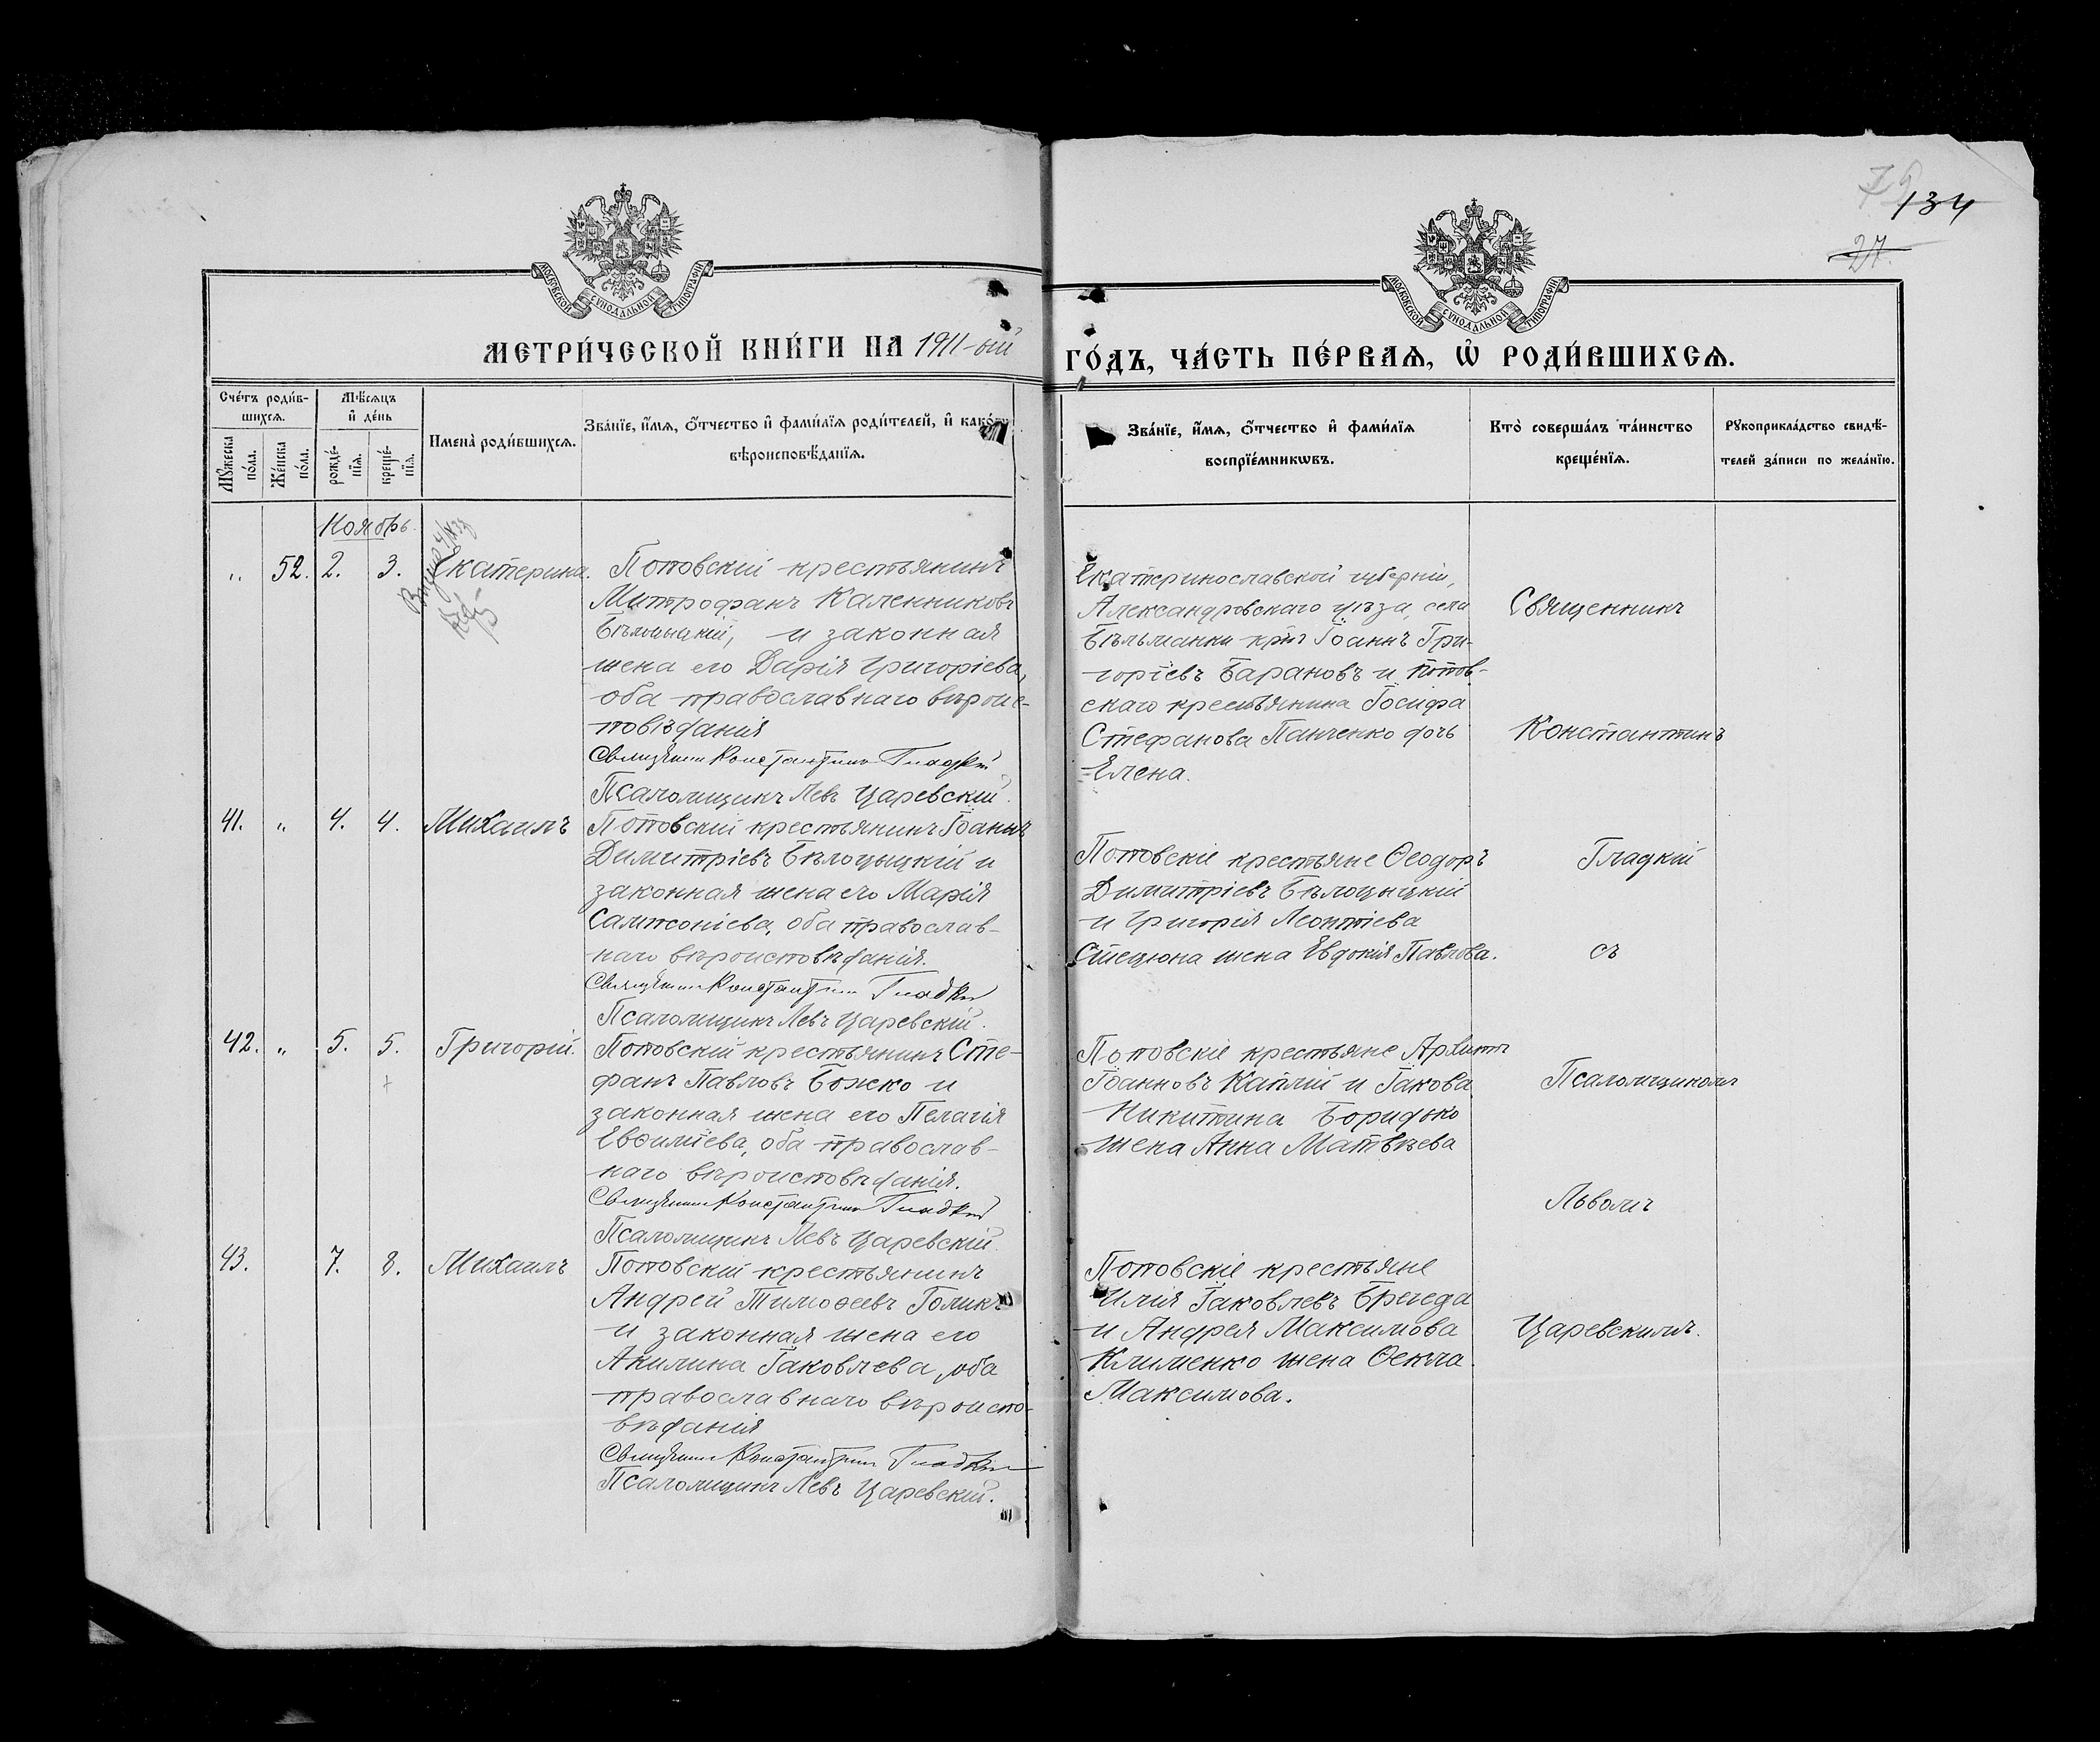 134
27.
МОСКОВСКОЙ СѴНОДАЛЬНОЙ ТИПОГРАФІИ
МОСКОВСКОЙ СѴНОДАЛЬНОЙ ТИПОГРАФІИ
МЕТРИ́ЧЕСКОЙ КНИ́ГИ НА 1911-ый
ГО́ДЪ, ЧА́СТЬ ПЕ́РВАѦ, Ѽ РОДИ́ВШИХСѦ.
Сче́тъ роди́в-
шихсѧ.
Мꙋжеска по́ла.
Же́нска по́ла.
Мѣ́сѧцъ
и҆ де́нь
рожде́-
нїѧ.
креще́-
нїѧ.
Имена̀ роди́вшихсѧ.
Зва́нїе, и҆́мѧ, ѻ҆́тчество и҆ фами́лїѧ роди́телей, и҆ како́гѡ
вѣроисповѣ́данїѧ.
Зва́нїе, и҆́мѧ, ѻ҆́тчество и҆ фами́лїѧ
воспрїе́мникѡвъ.
Кто̀ соверша́лъ та́инство
креще́нїѧ.
Рꙋкоприкла́дство свидѣ́-
телей за́писи по жела́нїю.
Ноябрь.
„ 52. 2. 3. Екатерина.
Поповскій крестьянинъ
Митрофанъ Каленниковъ
Бѣлоцыцкій, и законная
жена его Дарія Григоріева,
оба православнаго вѣроис-
повѣданія
Священникъ Константинъ Гладкій
Псаломщикъ Левъ Царевскій.
Екатеринославской губерніи,
Александровскаго уѣзда, села
Бѣльманки кр͠нъ Іоаннъ Гри-
горіевъ Барановъ и Попов-
скаго крестьянина Іосифа
Стефанова Панченко дочь
Елена.
41. „ 4. 4. Михаилъ
Поповскій крестьянинъ Іоаннъ
Димитріевъ Бѣлоцыцкій и
законная жена его Марія
Сампсоніева, оба православ-
наго вѣроисповѣданія.
Священникъ Константинъ Гладкій
Псаломщикъ Левъ Царевскій.
Поповскіе крестьяне Ѳеодоръ
Димитріевъ Бѣлоцыцкій
и Григорія Леонтіева
Стецюна жена Евдокія Павлова.
42. „ 5. 5. Григорій.
Поповскій крестьянинъ Сте-
фанъ Павловъ Божко и
законная жена его Пелагія
Евѳиміева, оба православ-
наго вѣроисповѣданія.
Священникъ Константинъ Гладкій
Псаломщикъ Левъ Царевскій.
Поповскіе крестьяне Архипъ
Іоанновъ Каплій и Іакова
Никитина Боридько
жена Анна Матвѣева
43. 7. 8. Михаилъ
Поповскій крестьянинъ
Андрей Тимоѳеевъ Голикъ
и законная жена его
Акилина Іаковлева, оба
православнаго вѣроиспо-
вѣданія
Священникъ Константинъ Гладкій
Псаломщикъ Левъ Царевскій.
Поповскіе крестьяне
Илія Іаковлевъ Брегеда
и Андрея Максимова
Клименко жена Ѳекла
Максимова.
Священникъ
Константинъ
Гладкій
съ
Псаломщикомъ
Львомъ
Царевскимъ.